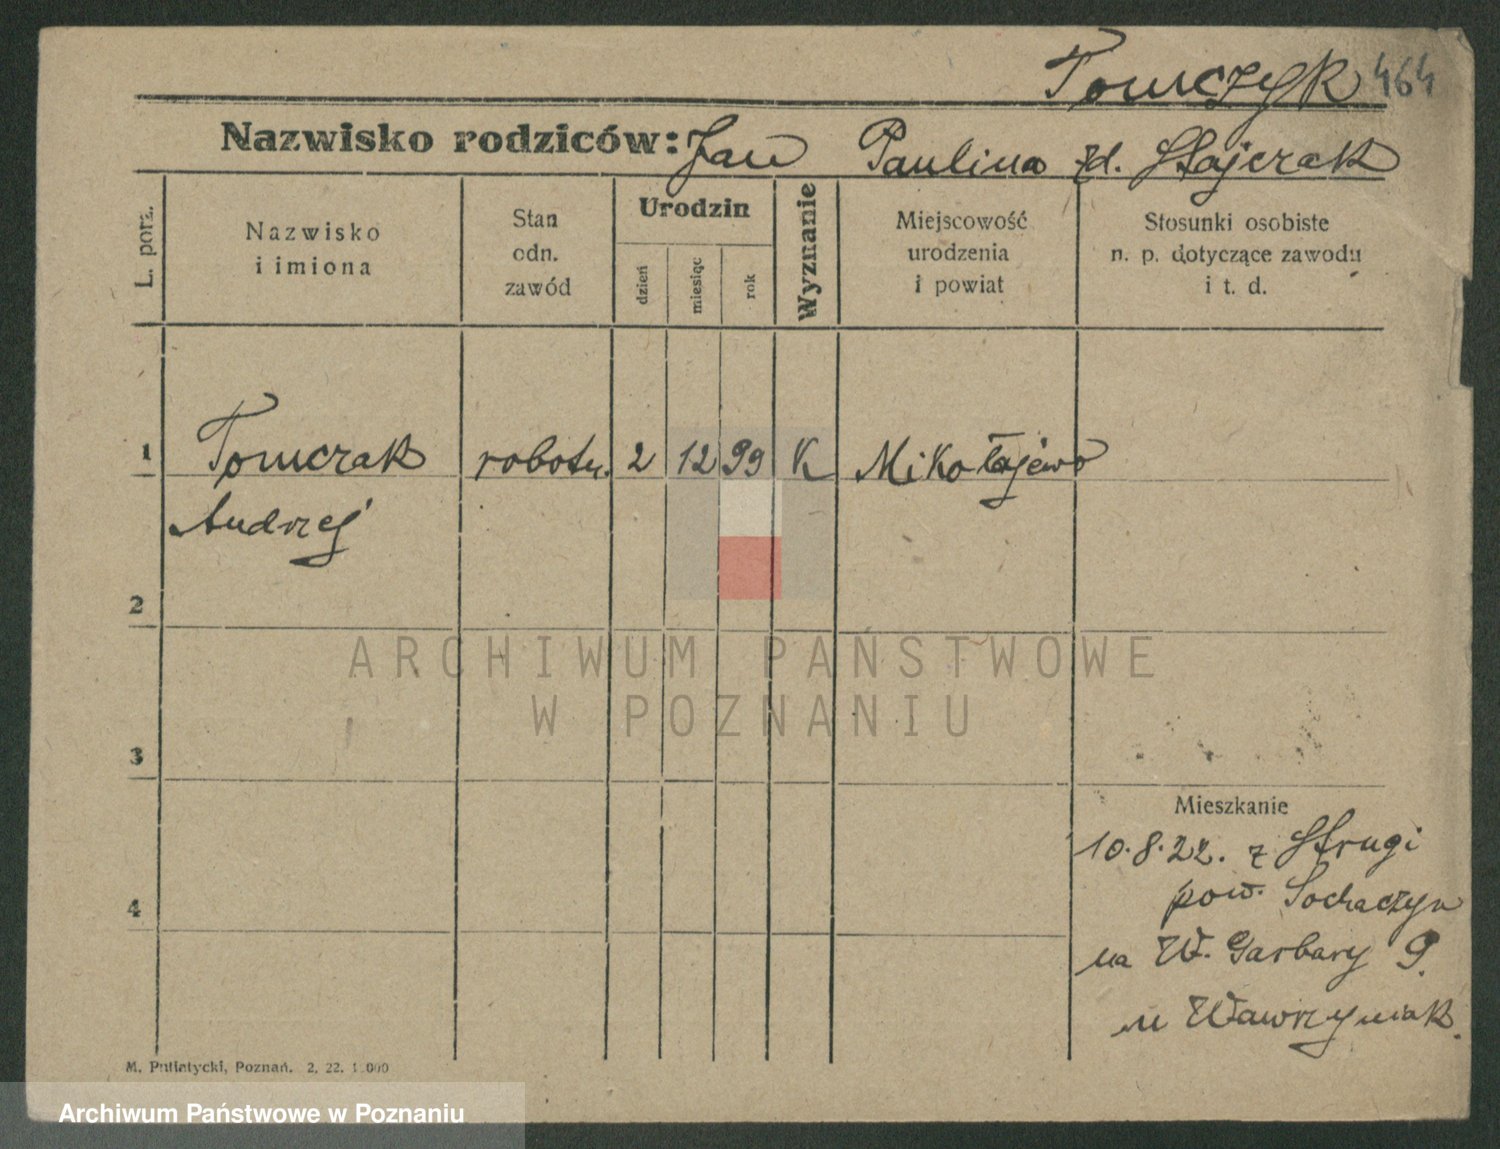 Tomczyk 464
Nazwisko rodziców: Jan Paulina zd. Stajczak
L. porz.
Nazwisko
i imiona
Stan
odn.
zawód
Urodzin
dzień
miesiąc
rok
Wyznanie
Miejscowość
urodzenia
i powiat
Stosunki osobiste
n. p. dotyczące zawodu
i t. d.
1 Tomczak robotn. 2 12 99 K Mikołajewo
Andrzej
2
3
4
Mieszkanie
10.8.22. z Strugi
pow. Sochaczyn
na W. Garbary 9.
u Wawrzyniak.
M. Putiatycki, Poznań. 2. 22. 1.000
ARCHIWUM PAŃSTWOWE
W POZNANIU
Archiwum Państwowe w Poznaniu